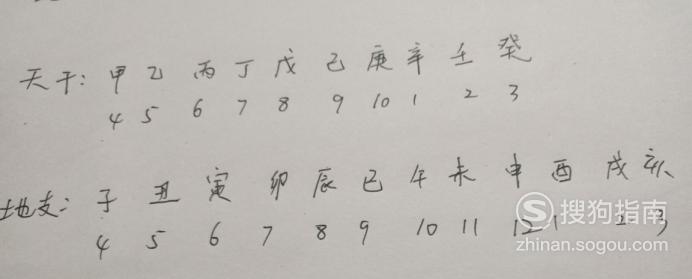 天干: 甲 乙 丙 丁 戊 己 庚 辛 壬 癸
4 5 6 7 8 9 10 1 2 3
地支: 子 丑 寅 卯 辰 巳 午 未 申 酉 戌 亥
4 5 6 7 8 9 10 11 12 1 2 3
搜狗指南
zhinan.sogou.com